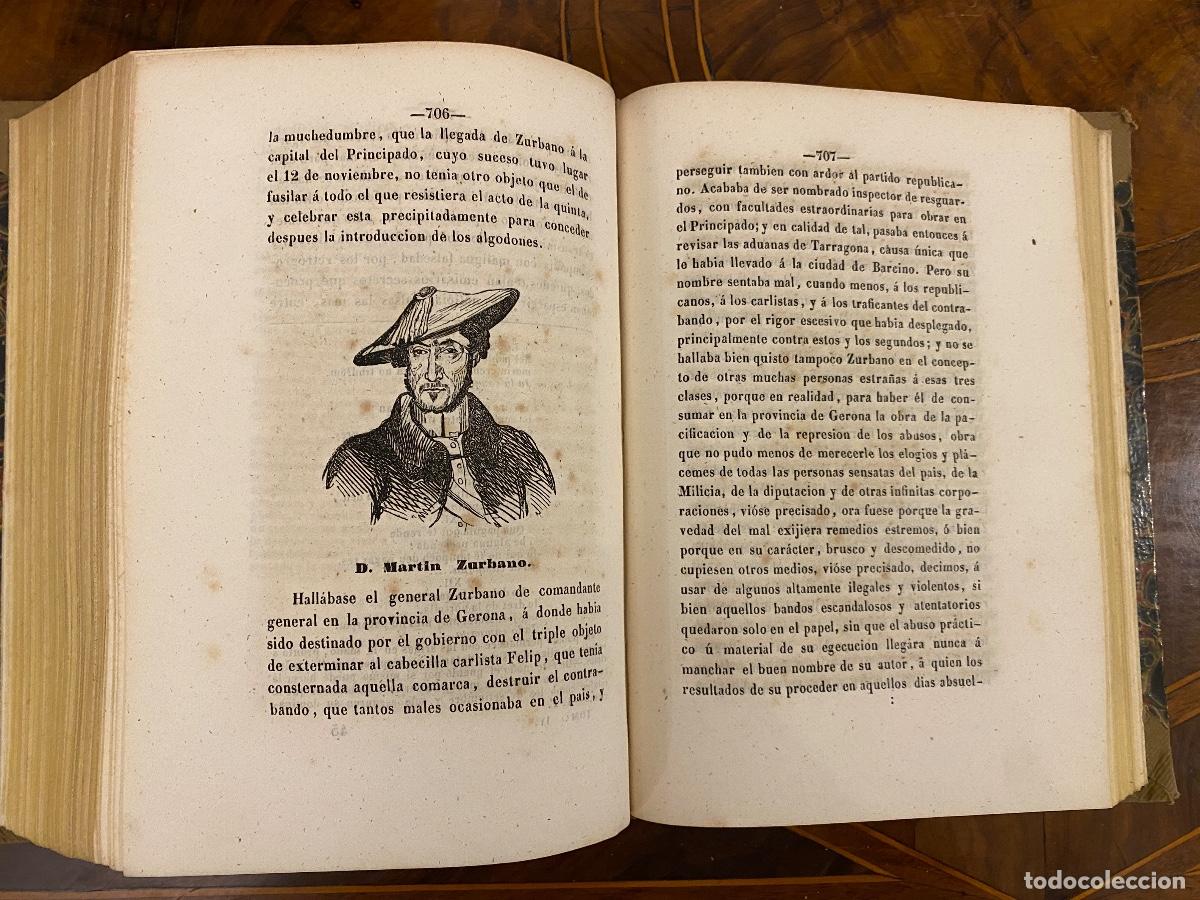 —706—
la muchedumbre, que la llegada de Zurbano á la
capital del Principado, cuyo suceso tuvo lugar
el 12 de noviembre, no tenia otro objeto que el de
fusilar á todo el que resistiera el acto de la quinta,
y celebrar esta precipitadamente para conceder
despues la introduccion de los algodones.
D. Martin Zurbano.
Hallábase el general Zurbano de comandante
general en la provincia de Gerona, á donde habia
sido destinado por el gobierno con el triple objeto
de exterminar al cabecilla carlista Felip, que tenia
consternada aquella comarca, destruir el contra-
bando, que tantos males ocasionaba en el pais, y
—707—
perseguir tambien con ardor al partido republica-
no. Acababa de ser nombrado inspector de resguar-
dos, con facultades estraordinarias para obrar en
el Principado; y en calidad de tal, pasaba entonces á
revisar las aduanas de Tarragona, causa única que
le habia llevado á la ciudad de Barcino. Pero su
nombre sentaba mal, cuando menos, á los republi-
canos, á los carlistas, y á los traficantes del contra-
bando, por el rigor escesivo que habia desplegado,
principalmente contra estos y los segundos; y no se
hallaba bien quisto tampoco Zurbano en el concep-
to de otras muchas personas estrañas á esas tres
clases, porque en realidad, para haber él de con-
sumar en la provincia de Gerona la obra de la pa-
cificacion y de la represion de los abusos, obra
que no pudo menos de merecerle los elogios y plá-
cemes de todas las personas sensatas del pais, de la
Milicia, de la diputacion y de otras infinitas corpo-
raciones, vióse precisado, ora fuese porque la gra-
vedad del mal exijiera remedios estremos, ó bien
porque en su carácter, brusco y descomedido, no
cupiesen otros medios, vióse precisado, decimos, á
usar de algunos altamente ilegales y violentos, si
bien aquellos bandos escandalosos y atentatorios
quedaron solo en el papel, sin que el abuso prácti-
co ú material de su egecucion llegára nunca á
manchar el buen nombre de su autor, á quien los
resultados de su proceder en aquellos dias absuel-
:
todocoleccion